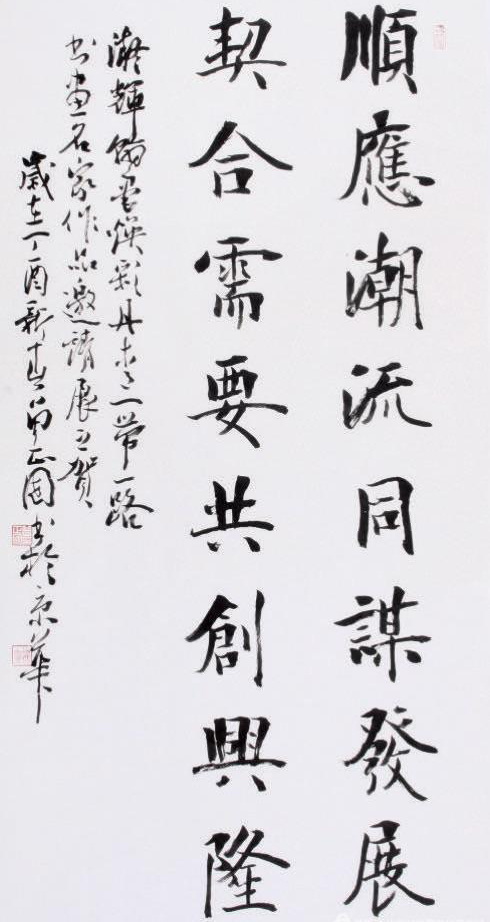 順應潮流同謀發展
契合需要共創興隆
輝翰墨煥彩丹青一帶一路
書畫名家作品邀請展之賀
歲在丁酉新春正國書於京華